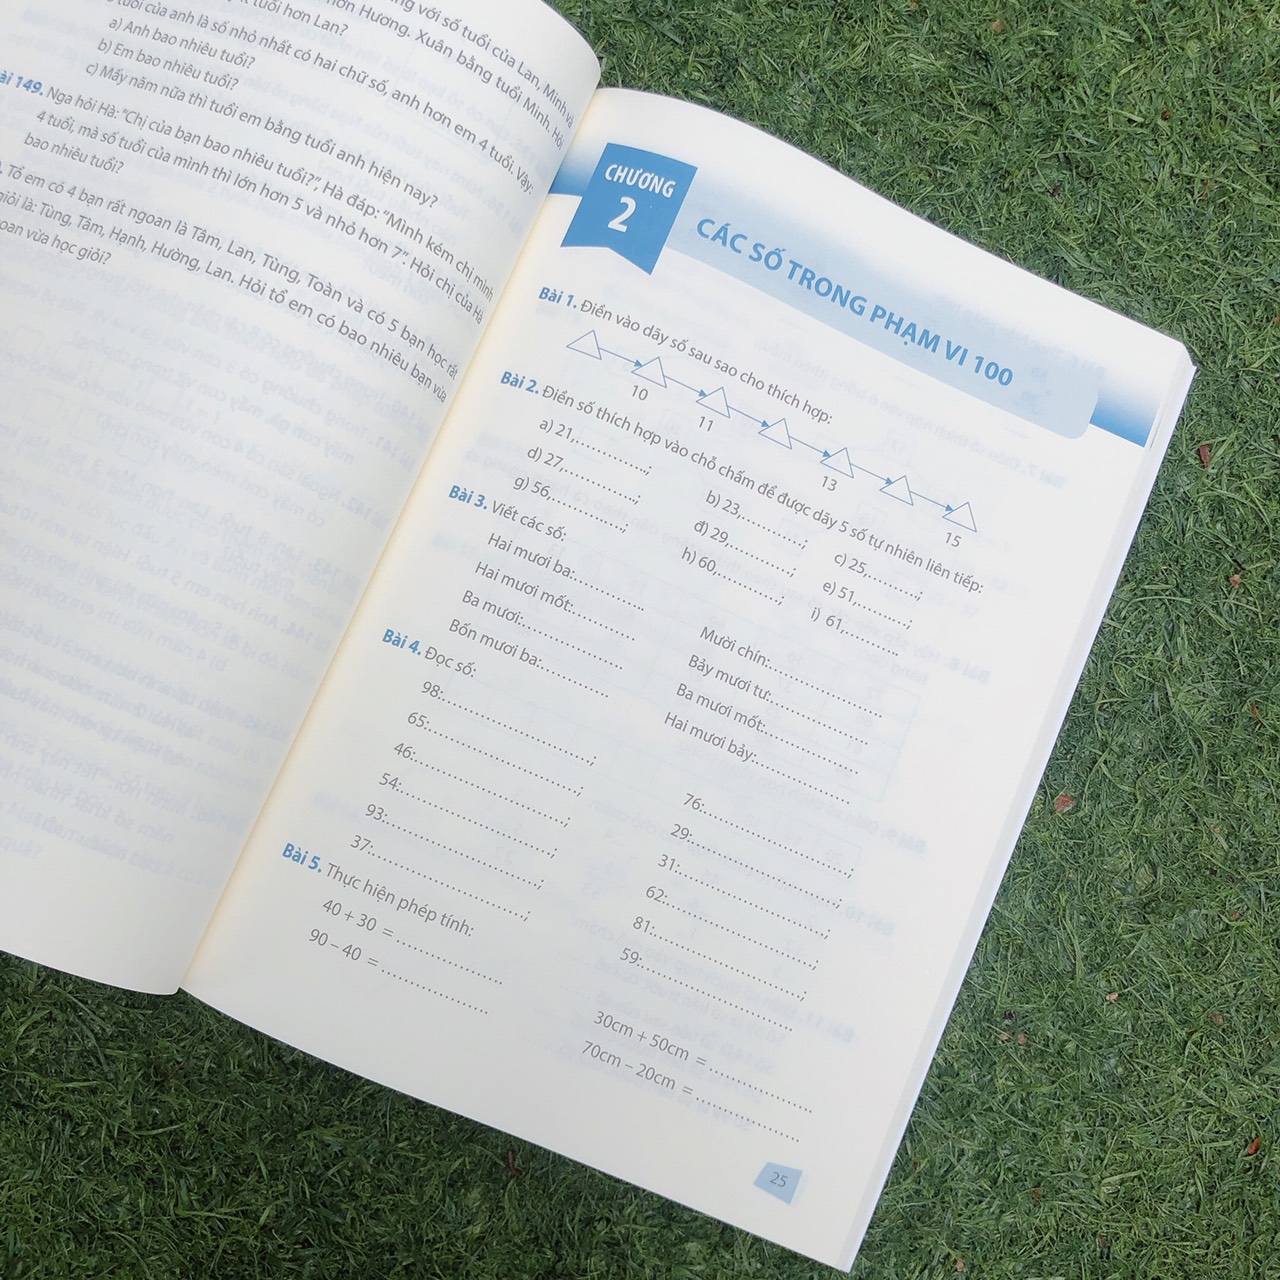 với số tuổi của Lan, Minh và
hơn Hương. Xuân bằng tuổi Minh. Hỏi
tuổi hơn Lan?
tuổi của anh là số nhỏ nhất có hai chữ số, anh hơn em 4 tuổi. Vậy:
a) Anh bao nhiêu tuổi?
b) Em bao nhiêu tuổi?
c) Mấy năm nữa thì tuổi em bằng tuổi anh hiện nay?
Bài 149. Nga hỏi Hà: “Chị của bạn bao nhiêu tuổi?”, Hà đáp: “Mình kém chị mình
4 tuổi, mà số tuổi của mình thì lớn hơn 5 và nhỏ hơn 7”. Hỏi chị của Hà
bao nhiêu tuổi?
Tổ em có 4 bạn rất ngoan là Tâm, Lan, Tùng, Toàn và có 5 bạn học rất
giỏi là: Tùng, Tâm, Hạnh, Hường, Lan. Hỏi tổ em có bao nhiêu bạn vừa
ngoan vừa học giỏi?
CHƯƠNG
2
CÁC SỐ TRONG PHẠM VI 100
Bài 1. Điền vào dãy số sau sao cho thích hợp:
10 11 13 15
Bài 2. Điền số thích hợp vào chỗ chấm để được dãy 5 số tự nhiên liên tiếp:
a) 21,............; b) 23,..........; c) 25,.........;
d) 27,............; đ) 29,..........; e) 51,.........;
g) 56,............; h) 60,..........; i) 61,.........
Bài 3. Viết các số:
Hai mươi ba:............ Mười chín:....................
Hai mươi mốt:........... Bảy mươi tư:..................
Ba mươi:................ Ba mươi mốt:..................
Bốn mươi ba:............ Hai mươi bảy:.................
Bài 4. Đọc số:
98:..........................; 76:..........................;
65:..........................; 29:..........................;
46:..........................; 31:..........................;
54:..........................; 62:..........................;
93:..........................; 81:..........................;
37:..........................; 59:..........................
Bài 5. Thực hiện phép tính:
40 + 30 = .................. 30cm + 50cm = ..................
90 – 40 = .................. 70cm – 20cm = ..................
25